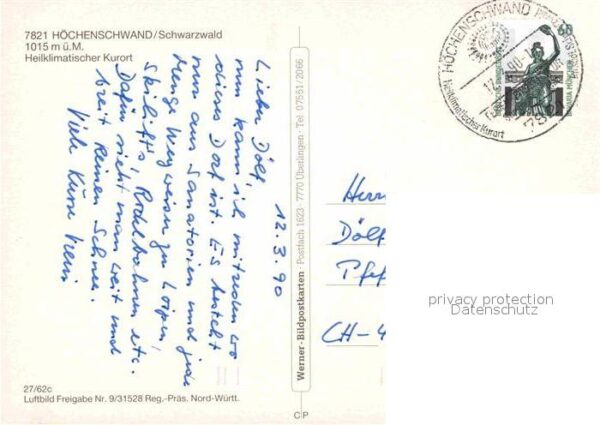 7821 HÖCHENSCHWAND/Schwarzwald
1015 m ü.M.
Heilklimatischer Kurort
12.3.90
Lieber Dölf,
nun kann ich mitreden wo
dieses Dorf ist. Es besteht
nur aus Sanatorien und jede
Menge Wegweiser zu Loipen,
Skilifts, Rodelbahnen etc.
Dafür sieht man weit und
breit keinen Schnee.
Viele
27/62c
Luftbild Freigabe Nr. 9/31528 Reg.-Präs. Nord-Württ.
Werner-Bildpostkarten · Postfach 1623 · 7770 Überlingen · Tel. 07551/2066
C|P
HÖCHENSCHWAND
Heilklimatischer Kurort
60
Herrn
Dölf
CH-4
privacy protection
Datenschutz